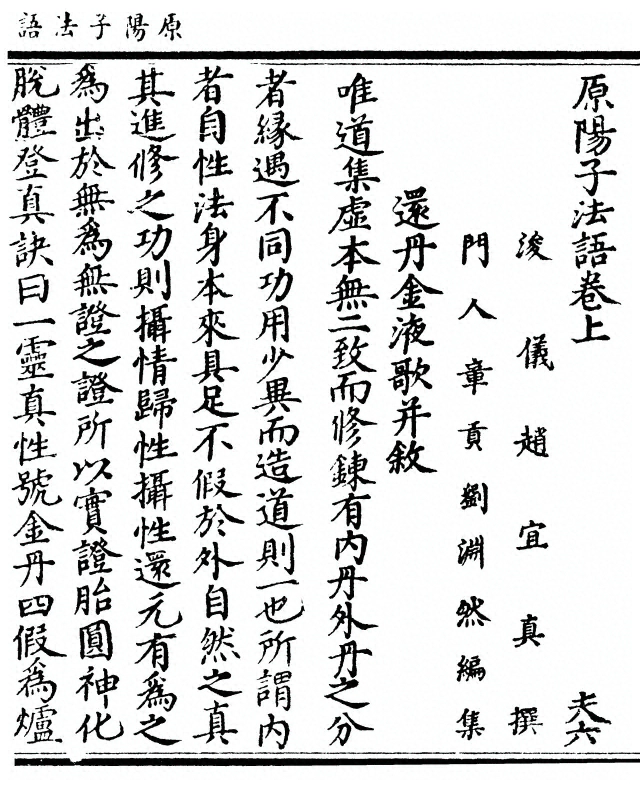 原陽子法語
原陽子法語卷上 夫六
浚儀趙宜真撰
門人章貢劉淵然編集
還丹金液歌并敘
唯道集虛本無二致而修鍊有內丹外丹之分
者緣遇不同功用少異而造道則一也所謂內
者自性法身本來具足不假於外自然之真
其進修之功則攝情歸性攝性還元有為之
為出於無為無證之證所以實證胎圓神化
脫體登真訣曰一靈真性號金丹四假為爐